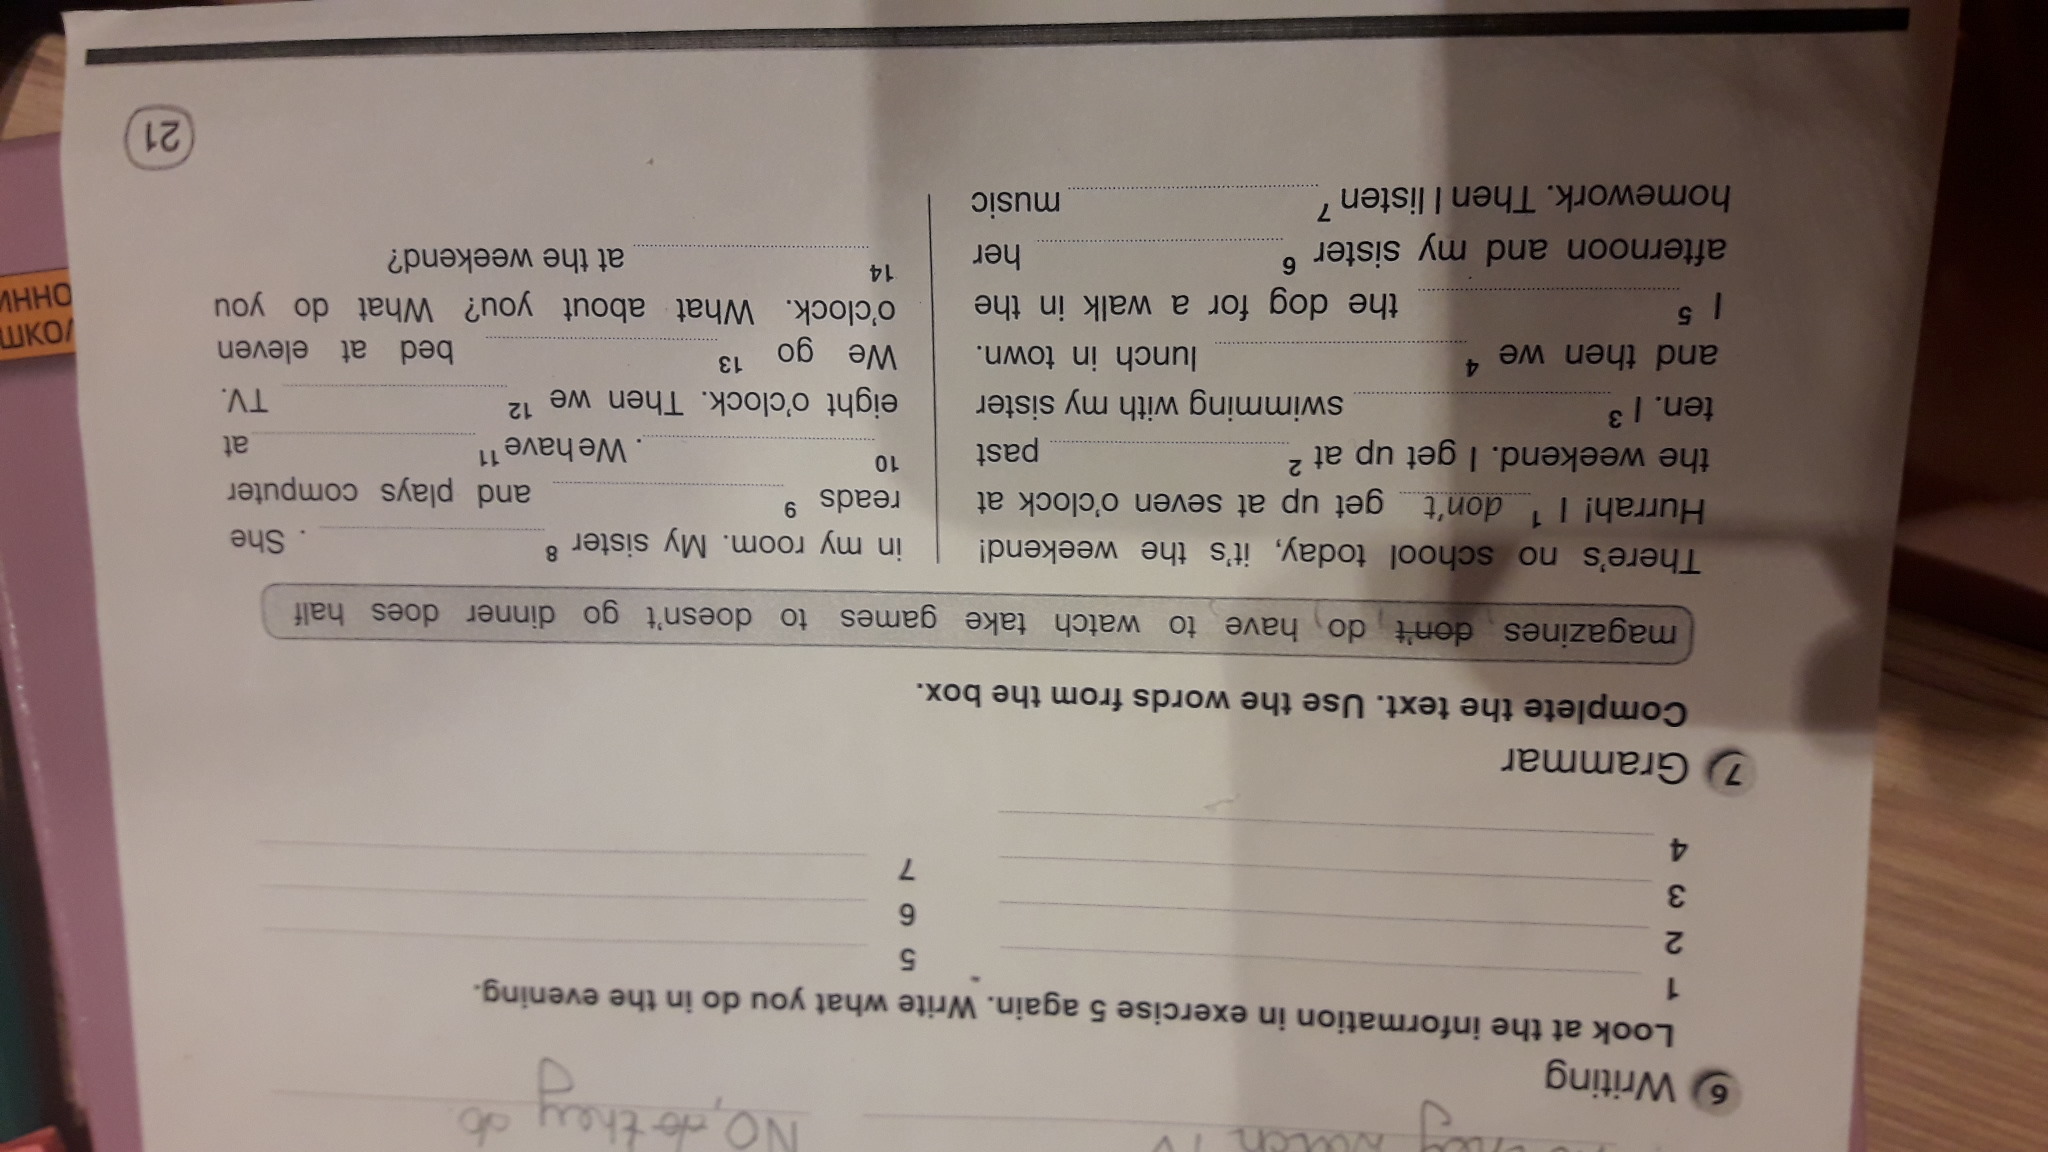 they watch TV
NO, do they do
6 Writing
Look at the information in exercise 5 again. Write what you do in the evening.
1
2
3
4
5
6
7
7 Grammar
Complete the text. Use the words from the box.
magazines don't do have to watch take games to doesn't go dinner does half
There's no school today, it's the weekend!
Hurrah! I 1 don't get up at seven o'clock at
the weekend. I get up at 2 past
ten. I 3 swimming with my sister
and then we 4 lunch in town.
I 5 the dog for a walk in the
afternoon and my sister 6 her
homework. Then I listen 7 music
in my room. My sister 8 . She
reads 9 and plays computer
10 . We have 11 at
eight o'clock. Then we 12 TV.
We go 13 bed at eleven
o'clock. What about you? What do you
14 at the weekend?
21